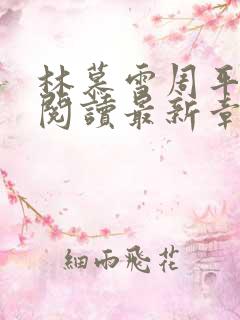 林慕雪周平
閱讀最新章
細雨飛花